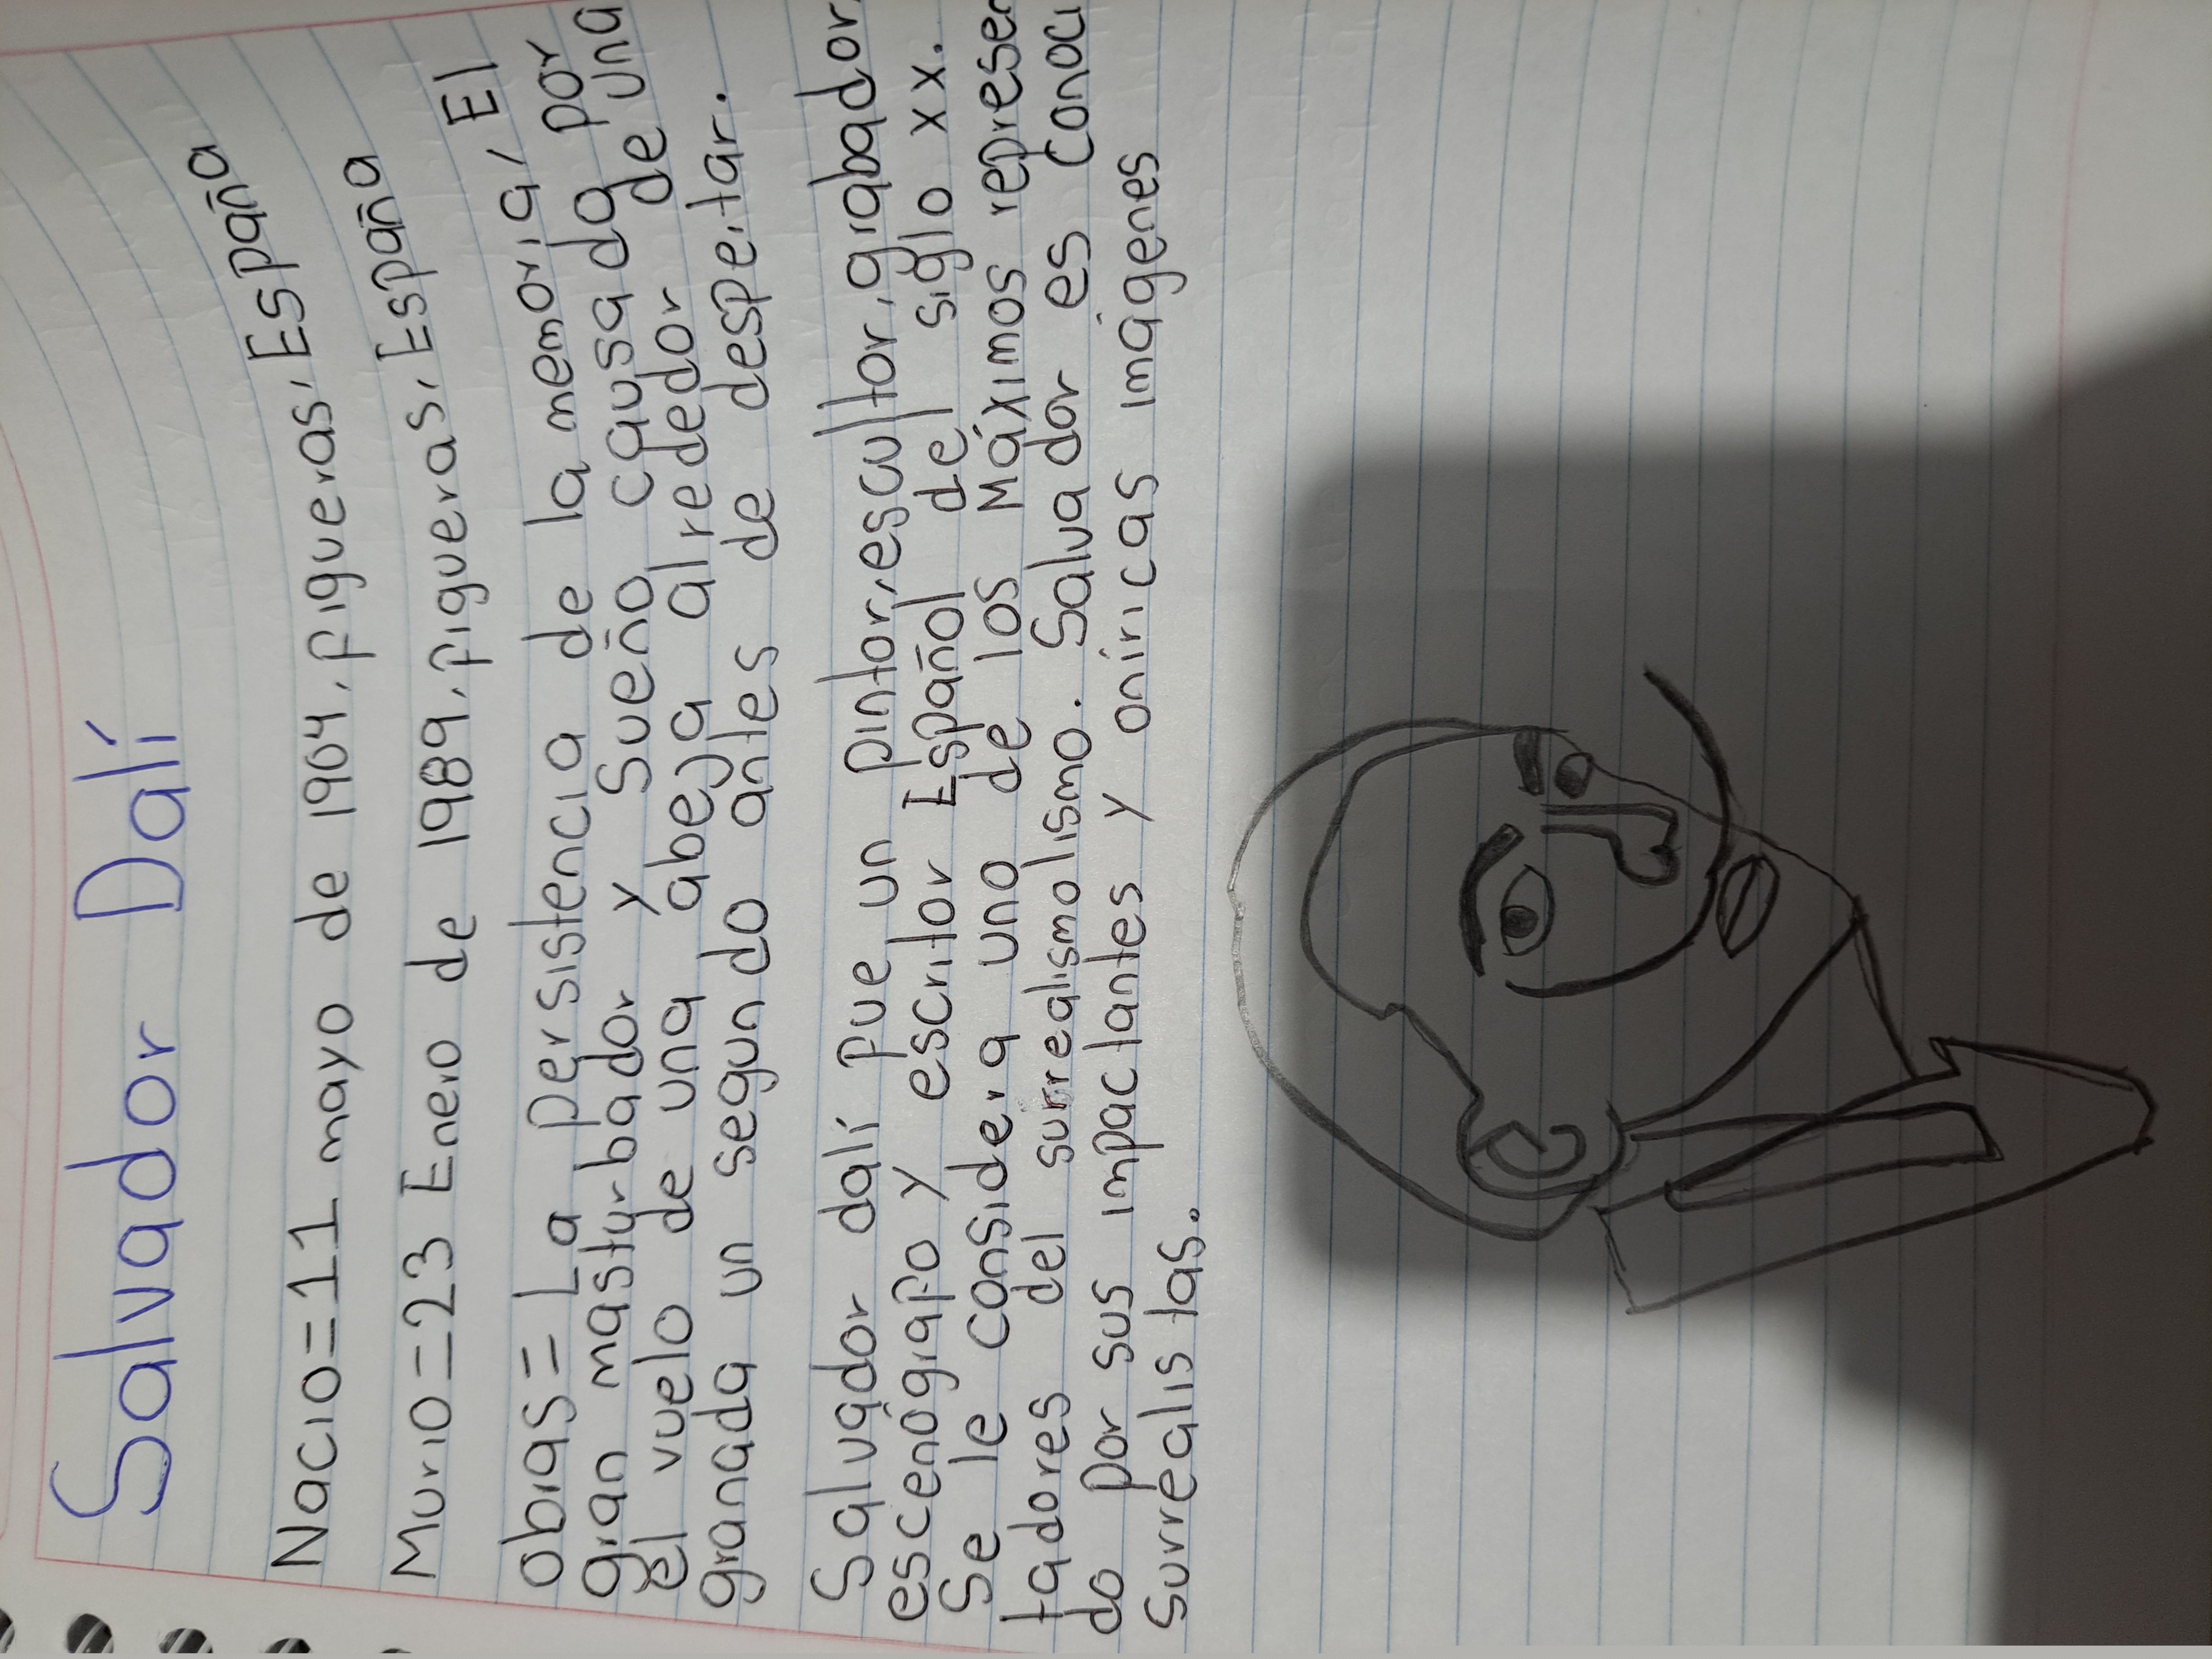 Salvador Dalí
Nacio=11 mayo de 1904, Figueras, España
Murio=23 Enero de 1989, Figueras, España
obras= La persistencia de la memoria, El
gran masturbador y Sueño causado por
el vuelo de una abeja alrededor de una
granada un segundo antes de despertar.
Salvador dalí fue un pintor, escultor, grabador,
escenógrafo y escritor Español del siglo xx.
Se le considera uno de los Máximos represen
tadores del surrealismolismo. Salvador es conoci
do por sus impactantes y oníricas imágenes
surrealistas.